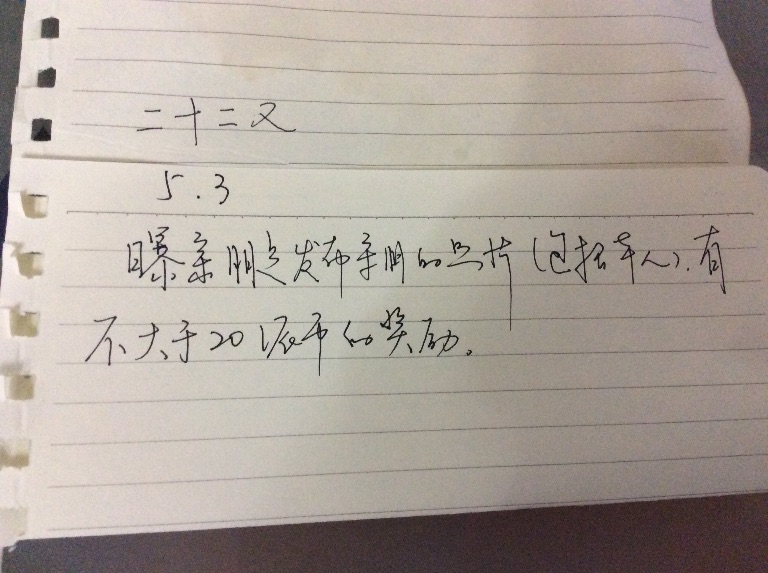 二十二又
5.3
曝亲朋点发布亲朋的照片(包括本人),有
不大于20派币的奖励。